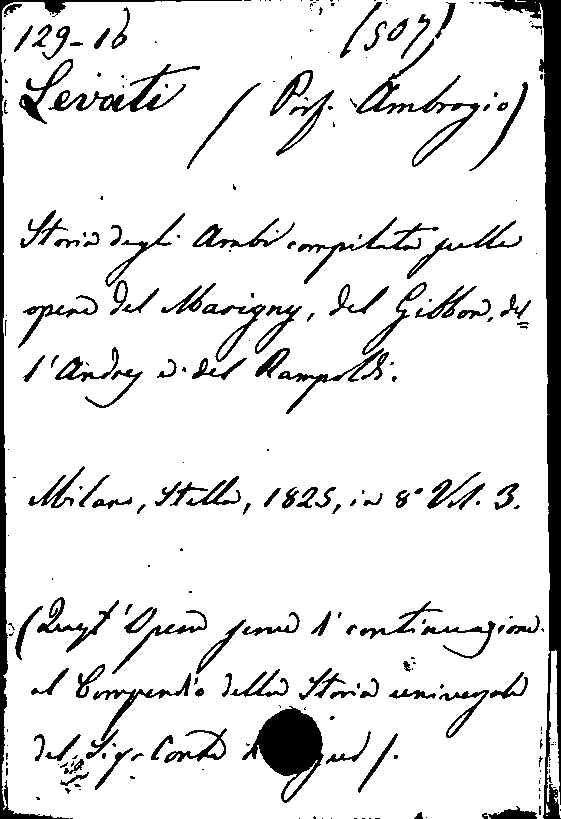 129-16 (507)
Levati (Prof. Ambrogio)
Storia degli Arabi compilata sulle
opere del Marigny, del Gibbon, del
l'Andres e del Rampoldi.
Milano, Stella, 1825, in 8° Vol. 3.
(Quest'Opera serve di continuazione
al Compendio della Storia universale
del Sigr Conte